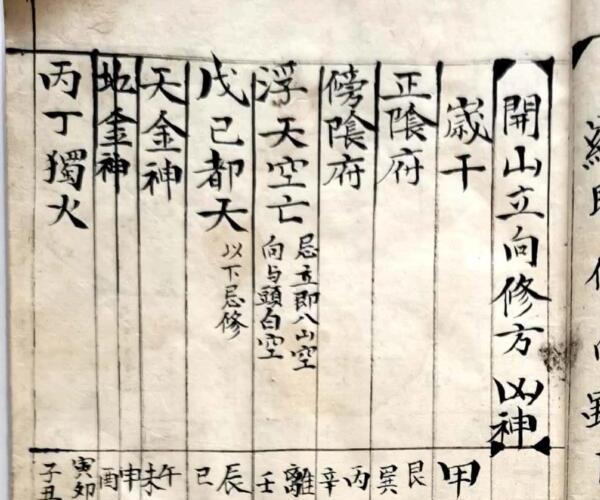 開山立向修方凶神
歲干
甲
正陰府
艮巽
傍陰府
丙辛
浮天空亡
忌立即八山空
向与頭白空
離壬
戊己都天
以下忌修
辰巳
天金神
午未
地金神
申酉
丙丁獨火
寅卯
子丑